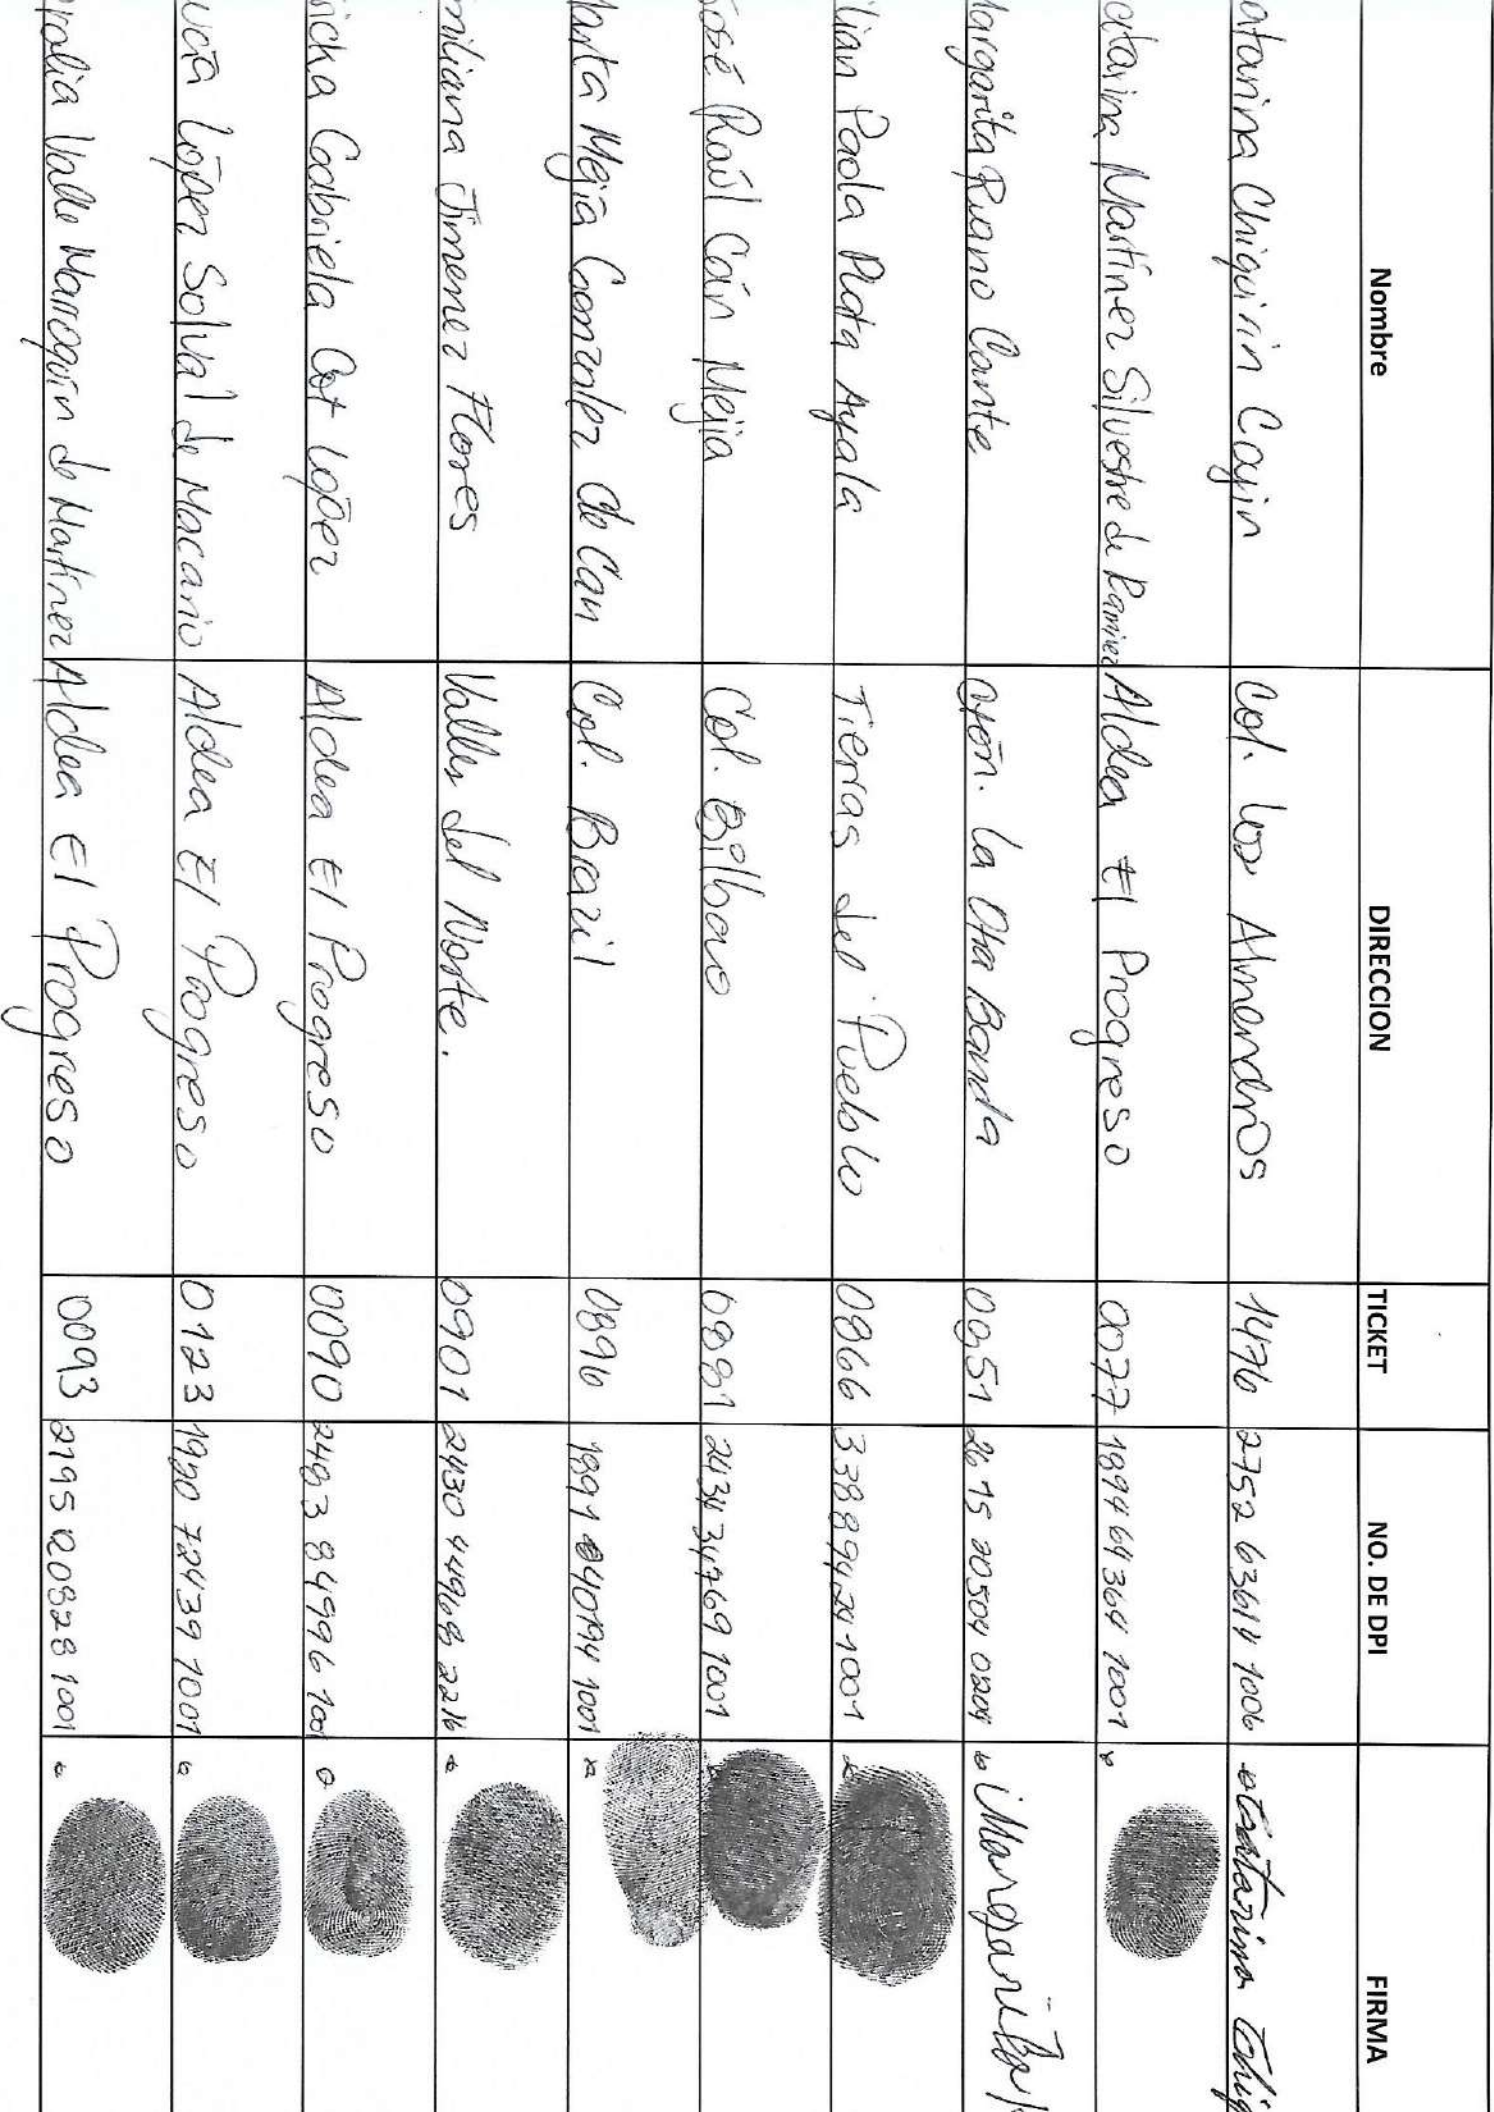 Nombre DIRECCION TICKET NO. DE DPI FIRMA
atarina Chiquirin Cayin Col. Los Almendros 1476 2752 63614 1006
atarina Martínez Silvestre de Ramirez Aldea El Progreso 0077 1894 64364 1001
argarita Ruano Cante Ctón. La Otra Banda 0051 2615 20504 0204 Margarita
lian Paola Plata Ayala Tierras del Pueblo 0866 3388 94241 1001
José Raúl Coán Mejía Col. Bilbao 0881 2434 34769 1001
arta Mejía Gonzalez de Can Col. Brazil 0896 1891 40194 1001
miliana Jimenez Flores Valles del Norte. 0901 2430 44968 2216
ricka Gabriela Cot López Aldea El Progreso 0090 2483 84996 1001
ucía López Solval de Macario Aldea El Progreso 0123 72439 1001
oralia Valle Marroquín de Martínez Aldea El Progreso 0093 2195 20828 1001